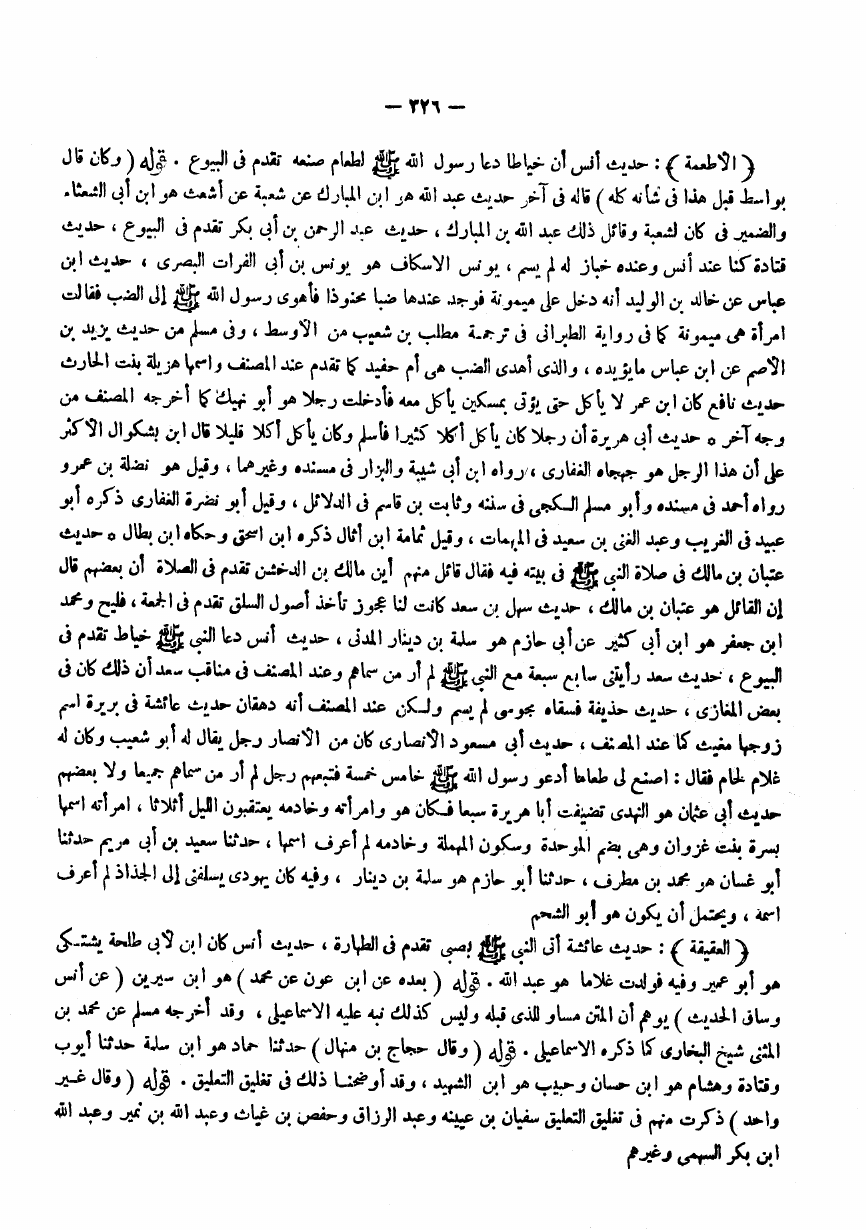 — ٣٢٦ —
﴿ الأطعمة ﴾ : حديث أنس أن خياطا دعا رسول الله ﷺ لطعام صنعه تقدم فى البيوع . قوله ( وكان قال
بواسط قبل هذا فى شأنه كله ) قاله فى آخر حديث عبد الله هو ابن المبارك عن شعبة عن أشعث هو ابن أبى الشعثاء
والضمير فى كان لشعبة وقائل ذلك عبد الله بن المبارك ، حديث عبد الرحمن بن أبى بكر تقدم فى البيوع ، حديث
قتادة كنا عند أنس وعنده خباز له لم يسم ، يونس الاسكاف هو يونس بن أبى الفرات البصرى ، حديث ابن
عباس عن خالد بن الوليد أنه دخل على ميمونة فوجد عندها ضبا محنوذا فأهوى رسول الله ﷺ إلى الضب فقالت
امرأة هى ميمونة كما فى رواية الطبرانى فى ترجمة مطلب بن شعيب من الأوسط ، وفى مسلم من حديث يزيد بن
الأصم عن ابن عباس مايؤيده ، والذى أهدى الضب هى أم حفيد كما تقدم عند المصنف واسمها هزيلة بنت الحارث
حديث نافع كان ابن عمر لا يأكل حتى يؤتى بمسكين يأكل معه فأدخلت رجلا هو أبو نهيك كما أخرجه المصنف من
وجه آخر * حديث أبى هريرة أن رجلا كان يأكل أكلا كثيرا فأسلم وكان يأكل أكلا قليلا قال ابن بشكوال الأكثر
على أن هذا الرجل هو جهجاه الغفارى ، رواه ابن أبى شيبة والبزار فى مسنده وغيرهما ، وقيل هو نضلة بن عمرو
رواه أحمد فى مسنده وأبو مسلم الكجى فى سننه وثابت بن قاسم فى الدلائل ، وقيل أبو نضرة الغفارى ذكره أبو
عبيد فى الغريب وعبد الغنى بن سعيد فى المبهمات ، وقيل ثمامة ابن أثال ذكره ابن اسحق وحكاه ابن بطال * حديث
عتبان بن مالك فى صلاة النبى ﷺ فى بيته فيه فقال قائل منهم أين مالك بن الدخشن تقدم فى الصلاة أن بعضهم قال
إن القائل هو عتبان بن مالك ، حديث سهل بن سعد كانت لنا عجوز تأخذ أصول السلق تقدم فى الجمعة ، فليح ومحمد
ابن جعفر هو ابن أبى كثير عن أبى حازم هو سلمة بن دينار المدنى ، حديث أنس دعا النبى ﷺ خياط تقدم فى
البيوع ، حديث سعد رأيتنى سابع سبعة مع النبى ﷺ لم أر من سماهم وعند المصنف فى مناقب سعد أن ذلك كان فى
بعض المغازى ، حديث حذيفة فسقاه مجوسى لم يسم ولكن عند المصنف أنه دهقان حديث عائشة فى بريرة اسم
زوجها مغيث كما عند المصنف ، حديث أبى مسعود الأنصارى كان من الأنصار رجل يقال له أبو شعيب وكان له
غلام لحام فقال : اصنع لى طعاما أدعو رسول الله ﷺ خامس خمسة فتبعهم رجل لم أر من سماهم جميعا ولا بعضهم
حديث أبى عثمان هو النهدى تضيفت أبا هريرة سبعا فكان هو وامرأته وخادمه يعتقبون الليل أثلاثا ، امرأته اسمها
بسرة بنت غزوان وهى بضم الموحدة وسكون المهملة وخادمه لم أعرف اسمها ، حدثنا سعيد بن أبى مريم حدثنا
أبو غسان هو محمد بن مطرف ، حدثنا أبو حازم هو سلمة بن دينار ، وفيه كان يهودى يسلفنى إلى الجذاذ لم أعرف
اسمه ، ويحتمل أن يكون هو أبو الشحم
﴿ العقيقة ﴾ : حديث عائشة أتى النبى ﷺ بصبى تقدم فى الطهارة ، حديث أنس كان ابن لأبى طلحة يشتكى
هو أبو عمير وفيه فولدت غلاما هو عبد الله . قوله ( بعده عن ابن عون عن محمد ) هو ابن سيرين ( عن أنس
وساق الحديث ) يوهم أن المتن مساو للذى قبله وليس كذلك نبه عليه الاسماعيلى ، وقد أخرجه مسلم عن محمد بن
المثنى شيخ البخارى كما ذكره الاسماعيلى . قوله ( وقال حجاج بن منهال ) حدثنا حماد هو ابن سلمة حدثنا أيوب
وقتادة وهشام هو ابن حسان وحبيب هو ابن الشهيد ، وقد أوضحنا ذلك فى تغليق التعليق . قوله ( وقال غير
واحد ) ذكرت منهم فى تغليق التعليق سفيان بن عيينه وعبد الرزاق وحفص بن غياث وعبد الله بن نمير وعبد الله
ابن بكر السهمى وغيرهم